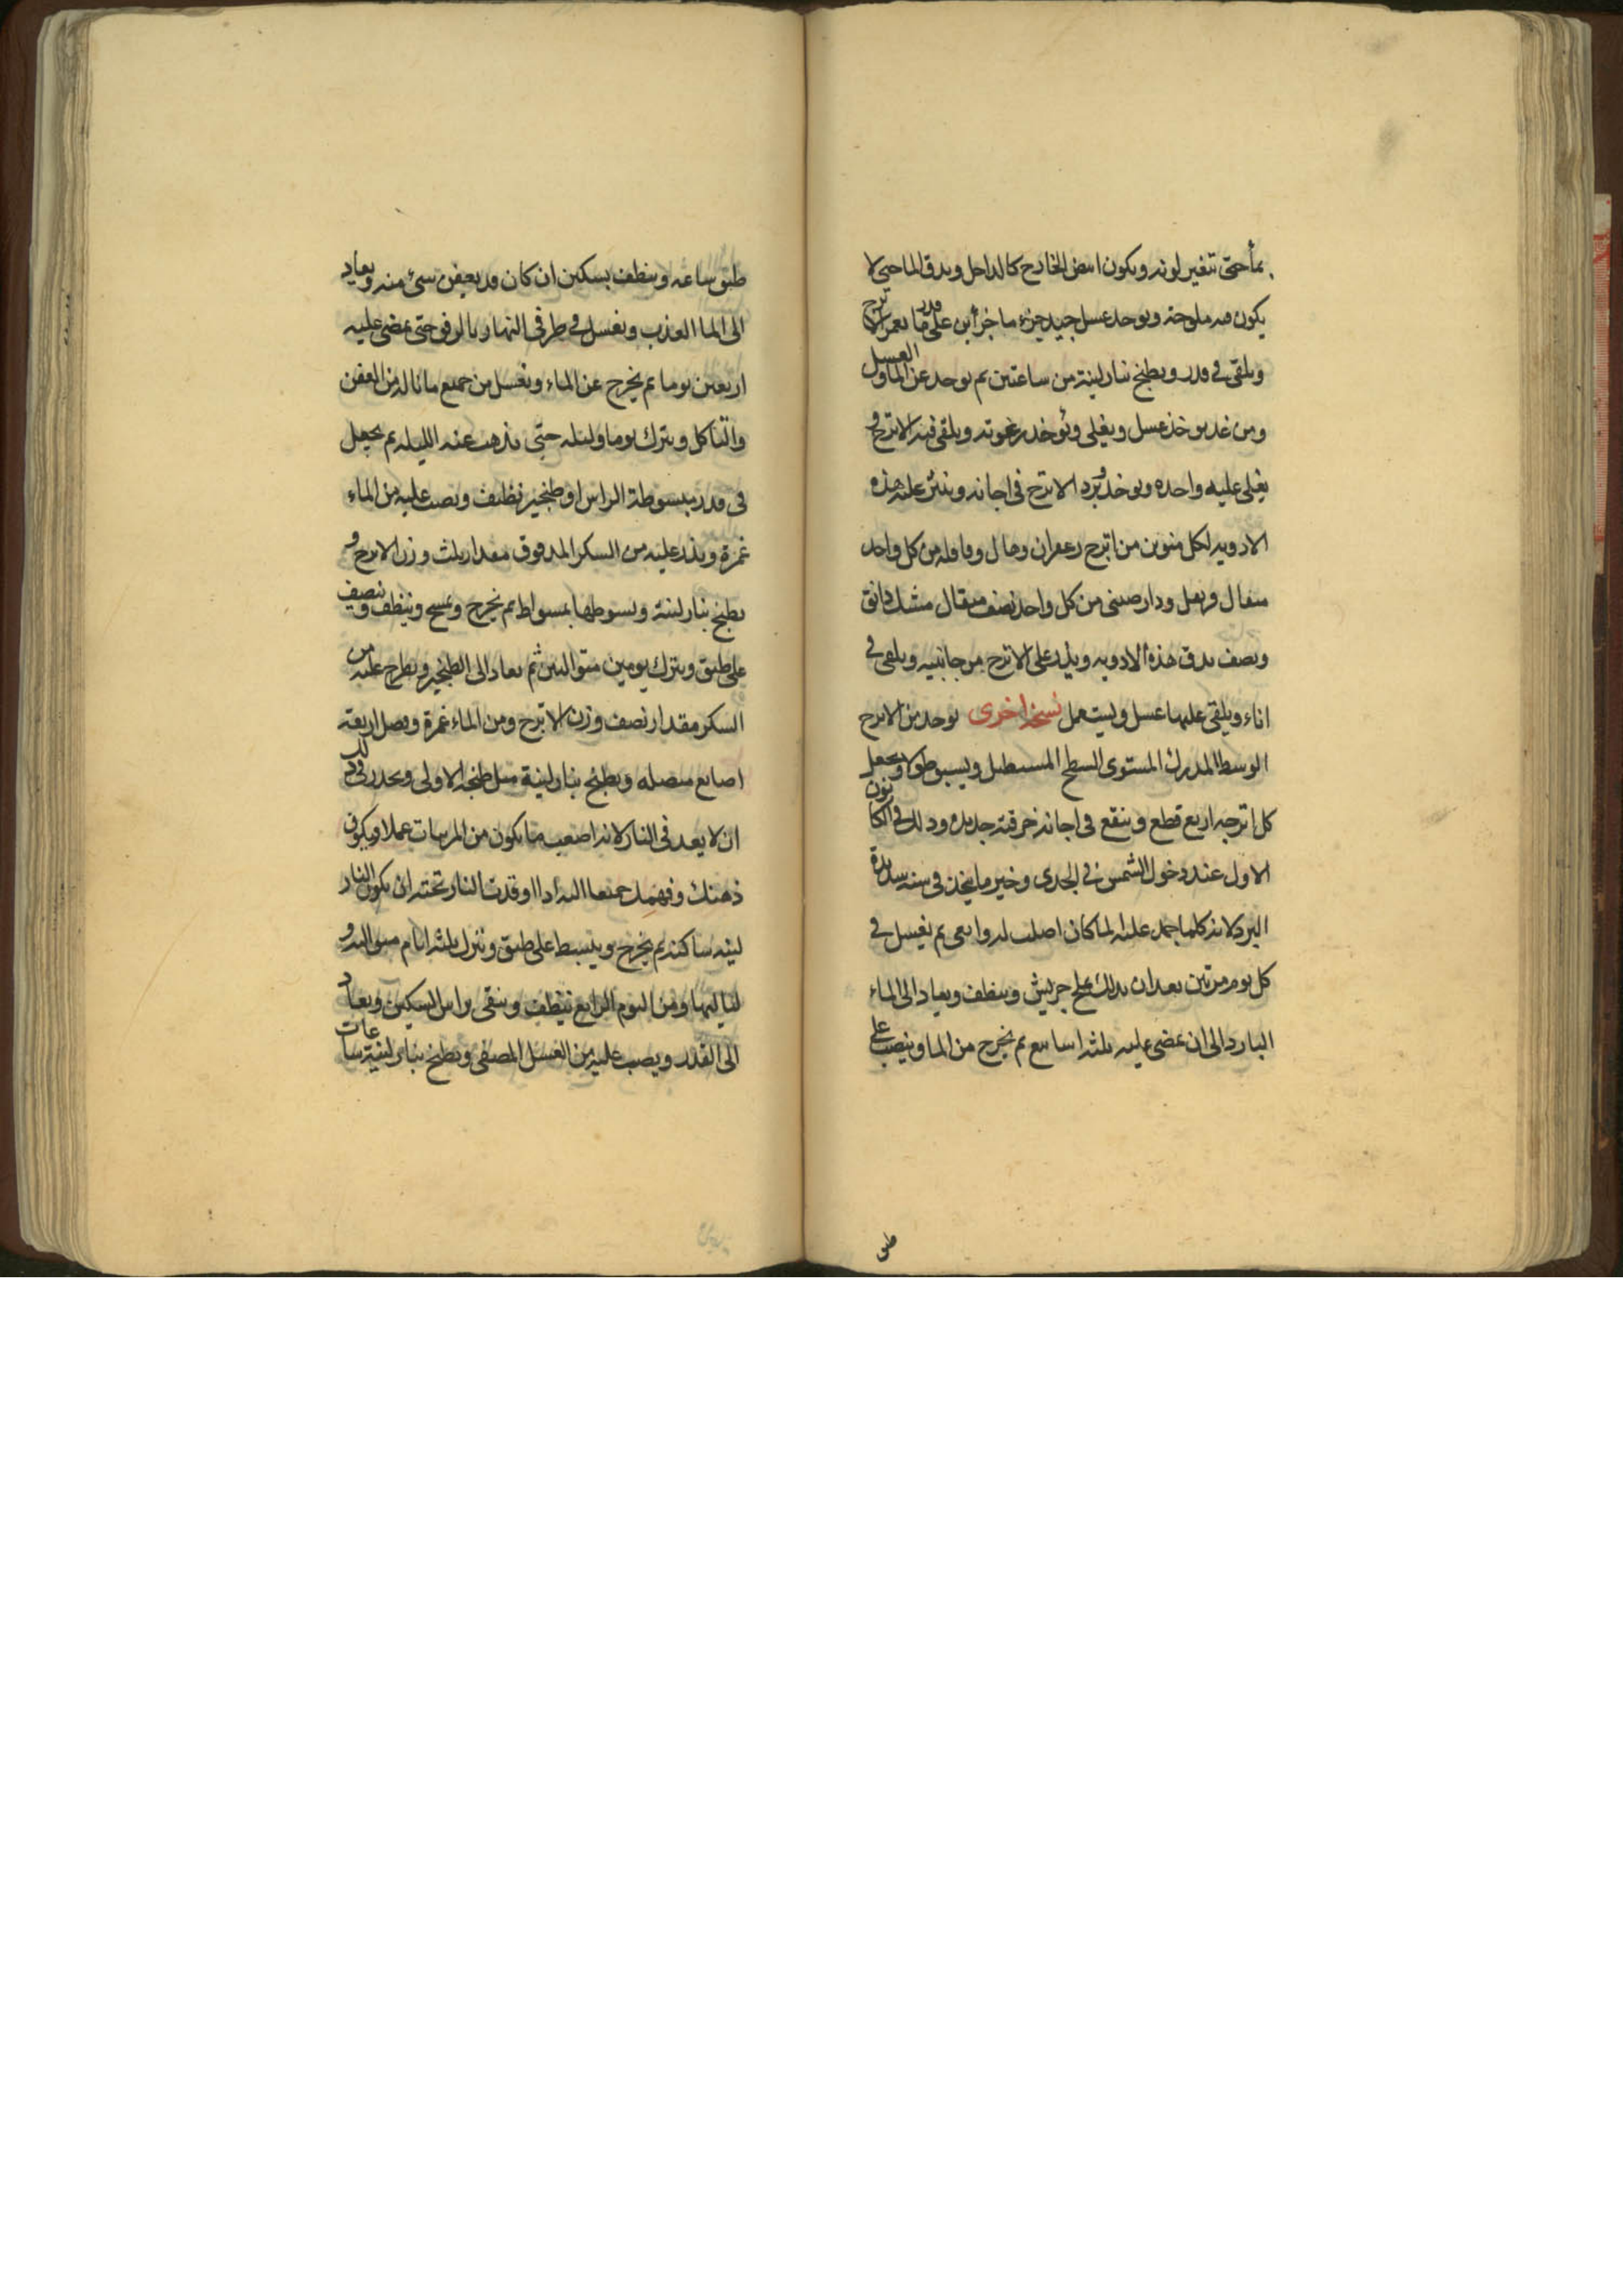 بمأ حتى تتغير لونه ويكون ابيض الخارج كالداخل ويدق الما حتى لا
يكون فيه ملوحة ويوخد عسل جيد جزء ما جزأين على قدر ما يغمر الاترج
ويلقى في قدر ويطبخ بنار لينة من ساعتين ثم يوخد عن الما والعسل
ومن غد يوخذ عسل ويغلى ويؤخد رغوته ويلقى فيه الاترج و
يغلى عليه واحده ويوخد ويبرد الاترج في اجانه وينثر عليه هذه
الادويه لكل منوين من اترج زعفران وهال وقاقله من كل واحد
مثقال قرنفل ودارصيني من كل واحد نصف مثقال مشك دانق
ونصف يدق هذه الادويه ويذر على الاترج من جانبيه ويلقى في
اناء ويلقى عليها عسل ويستعمل نسخه اخرى يوخد من الاترج
الوسط المدرك المستوى السطح المستطيل ويشق طولا ويجعل
كل اترجه اربع قطع وينقع في اجانه خزفية جديده وذلك في الكانون
الاول عند دخول الشمس في الجدى وخير ما يتخذ في سنه شديدة
البرد لانه كلما جمد عليه الما كان اصلب له وابقى ثم يغسل في
كل يوم مرتين بعد ان يدلك بملح جريش وينظف ويعاد الى الماء
البارد الى ان يمضى عليه ثلثه اسابيع ثم يخرج من الما وينصب على
طبق
طبق ساعه وينظف بسكين ان كان قد يعفن شئ منه ويعاد
الى الما العذب ويغسل في طرفي النهار بالرفق حتى يمضى عليه
اربعين يوما ثم يخرج عن الماء ويغسل من جميع ما ناله من العفن
والتاكل ويترك يوما وليله حتى يذهب عنه الليله ثم يجعل
في قدر مبسوطة الراس او طنجير نظيف ويصب عليه من الماء
غمرة ويذر عليه من السكر المدقوق مقدار ثلث وزن الاترج و
يطبخ بنار لينة ويسوطها بمسواط ثم يخرج ويمسح وينظف وينصف
على طبق ويترك يومين متواليين ثم يعاد الى الطنجير ويطرح عليه من
السكر مقدار نصف وزن الاترج ومن الماء غمرة وفضل اربعة
اصابع متصله ويطبخ بنار لينة مثل طبخه الاولى ويحذر في ذلك
ان لا يعد في النار لانه اصعب ما يكون من المربيات عملا ويكون
ذهنك وفهمك جميعا اليه اذا اوقدت النار تحته ان يكون النار
لينه ساكنه ثم يخرج ويبسط على طبق ويترك ثلثه ايام متواليه و
لياليها ومن اليوم الرابع ينظف وينقى براس السكين ويعاد
الى القدر ويصب عليه من العسل المصفى ويطبخ بنار لينة ساعات